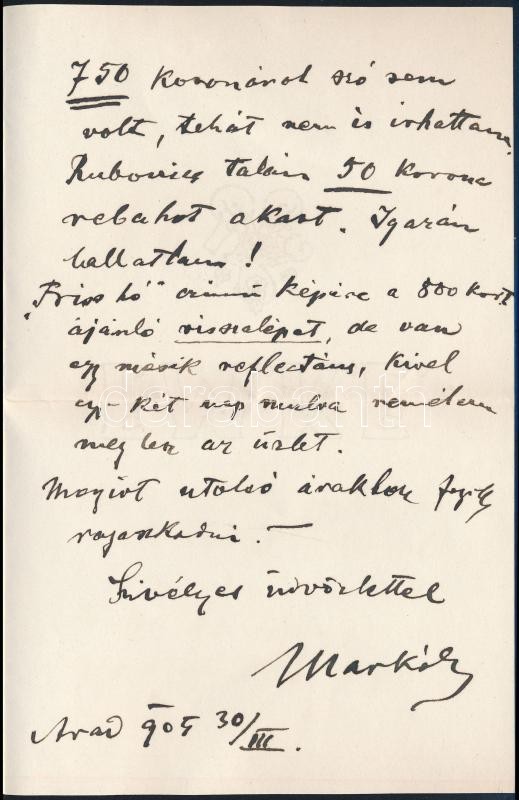 750 koronáról szó sem
volt, tehát nem is irhattam.
talán 50 korona
rebahot akart. Igazán
hallatlan!
"Friss hó" czimü képére a 800 kor.t
ajánló visszalépett, de van
egy másik reflectáns, kivel
egy két nap mulva remélem
meg lesz az üzlet.
Megirt utolsó árakhoz
ragaszkodni. —
Szivélyes üdvözlettel
Arad 905 30/III.
darabanth